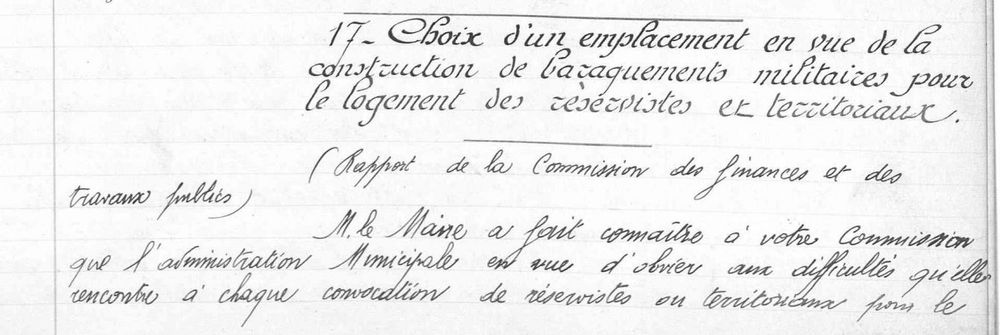 17_ Choix d'un emplacement en vue de la
construction de baraquements militaires pour
le logement des réservistes et territoriaux.
(Rapport de la Commission des finances et des
travaux publics)
M. le Maire a fait connaître à votre Commission
que l'administration Municipale en vue d'obvier aux difficultés qu'elle
rencontre à chaque convocation de réservistes ou territoriaux pour le